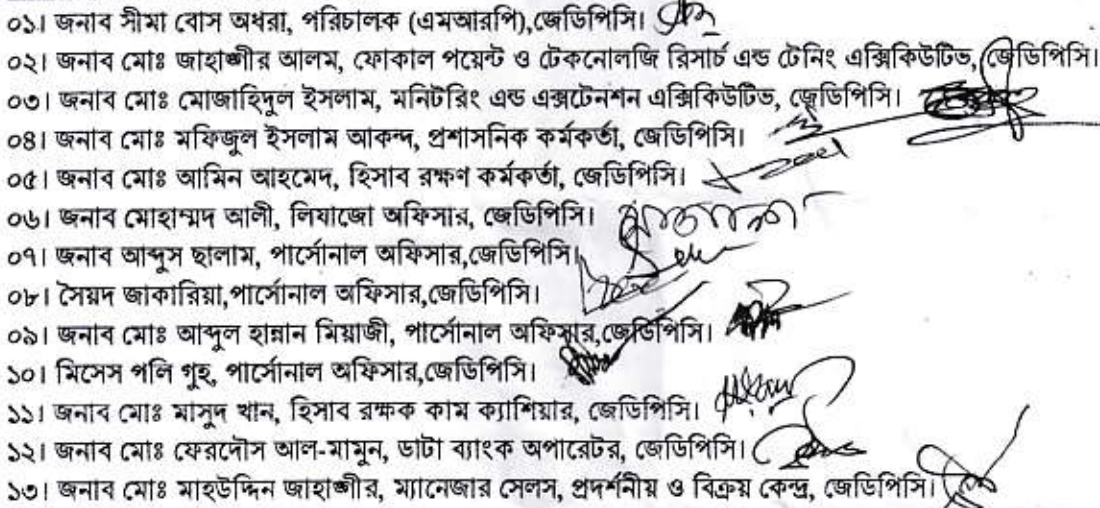 ০১। জনাব সীমা বোস অধরা, পরিচালক (এমআরপি),জেডিপিসি।
০২। জনাব মোঃ জাহাঙ্গীর আলম, ফোকাল পয়েন্ট ও টেকনোলজি রিসার্চ এন্ড টেনিং এক্সিকিউটিভ, জেডিপিসি।
০৩। জনাব মোঃ মোজাহিদুল ইসলাম, মনিটরিং এন্ড এক্সটেনশন এক্সিকিউটিভ, জেডিপিসি।
০৪। জনাব মোঃ মফিজুল ইসলাম আকন্দ, প্রশাসনিক কর্মকর্তা, জেডিপিসি।
০৫। জনাব মোঃ আমিন আহমেদ, হিসাব রক্ষণ কর্মকর্তা, জেডিপিসি।
০৬। জনাব মোহাম্মদ আলী, লিয়াজো অফিসার, জেডিপিসি।
০৭। জনাব আব্দুস ছালাম, পার্সোনাল অফিসার,জেডিপিসি।
০৮। সৈয়দ জাকারিয়া,পার্সোনাল অফিসার,জেডিপিসি।
০৯। জনাব মোঃ আব্দুল হান্নান মিয়াজী, পার্সোনাল অফিসার,জেডিপিসি।
১০। মিসেস পলি গূহ, পার্সোনাল অফিসার,জেডিপিসি।
১১। জনাব মোঃ মাসুদ খান, হিসাব রক্ষক কাম ক্যাশিয়ার, জেডিপিসি।
১২। জনাব মোঃ ফেরদৌস আল-মামুন, ডাটা ব্যাংক অপারেটর, জেডিপিসি।
১৩। জনাব মোঃ মাহউদ্দিন জাহাঙ্গীর, ম্যানেজার সেলস, প্রদর্শনীয় ও বিক্রয় কেন্দ্র, জেডিপিসি।